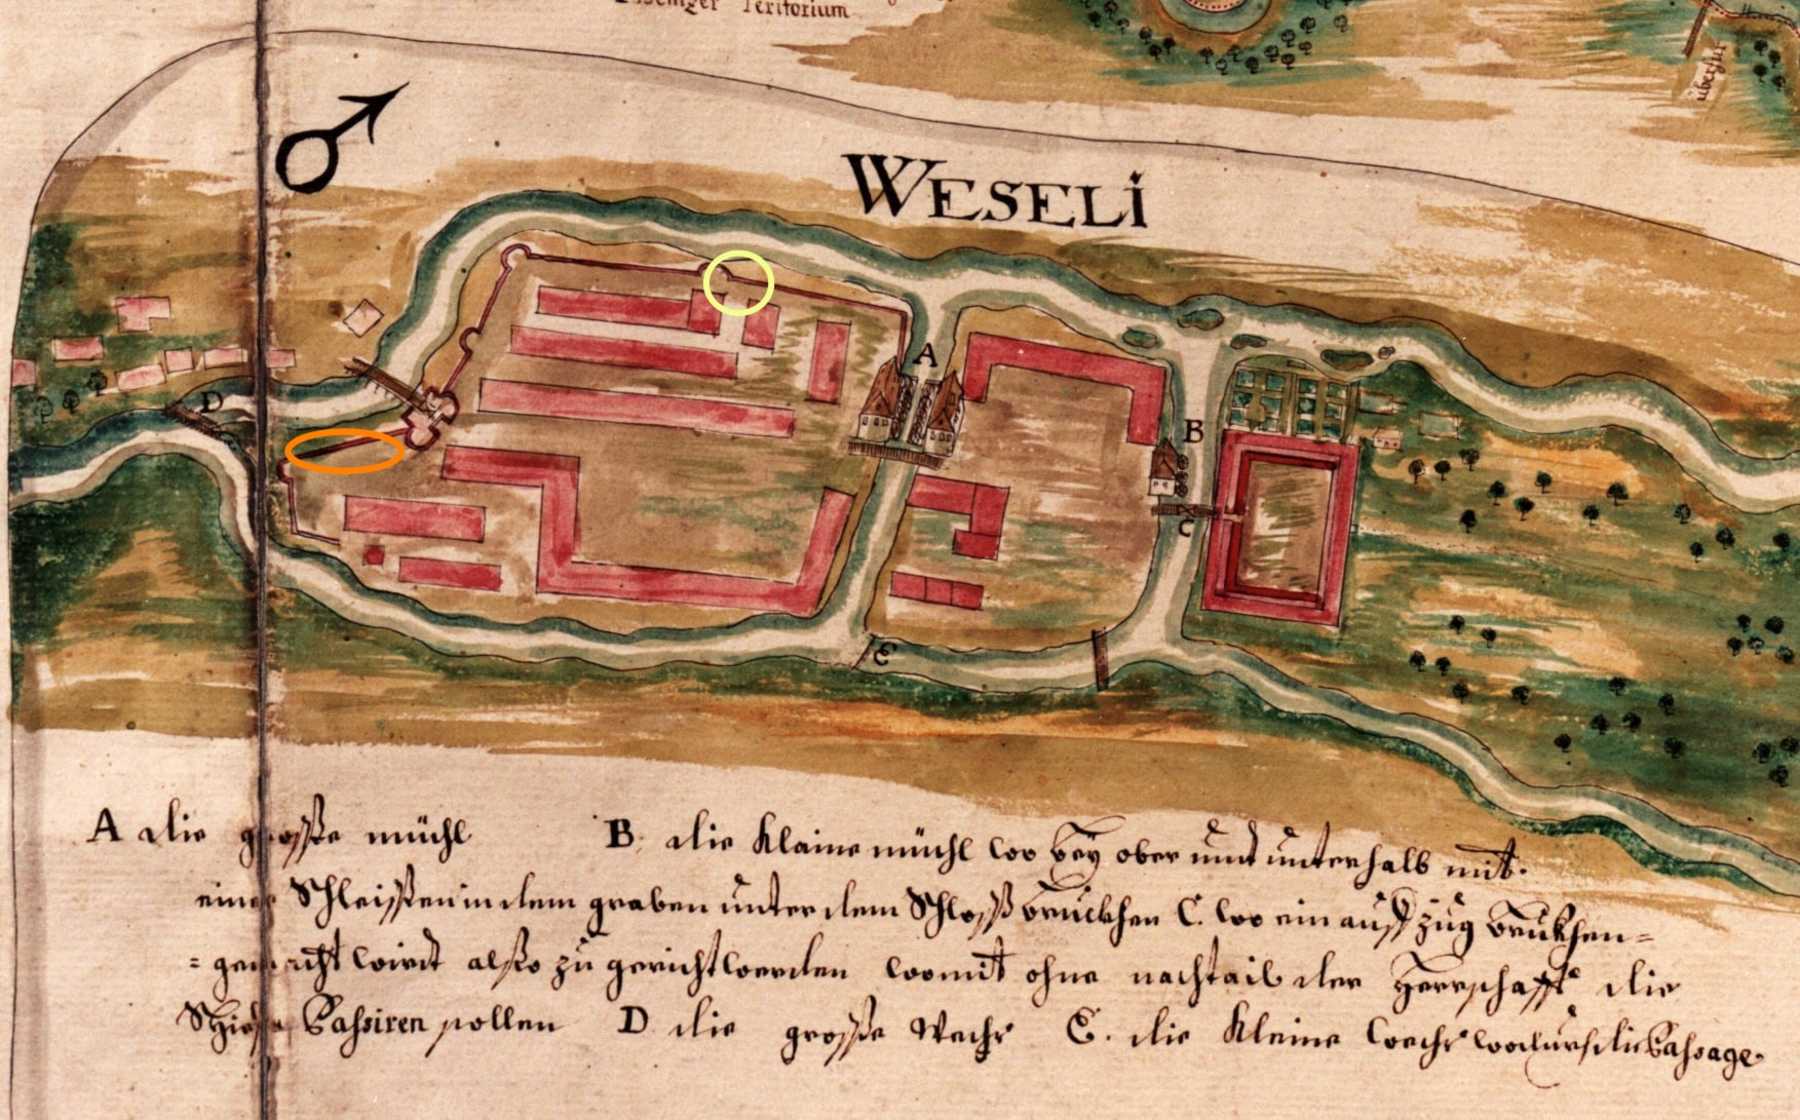 Teritorium
überfur
WESELI
A
B
D
C
E
A die große mühl B. die Klaine mühl wo beÿ ober und unterhalb mit
einer Schleißen in dem graben unter dem Schloß brückhen C. wo ein auff zug brukhen=
=gemacht wirdt alßo zu gericht werden womit ohne nachtail der Herrschafft die
Schieffe Passiren sollen D die große Wehr E. die Kleine Wehr wodurch die Passage